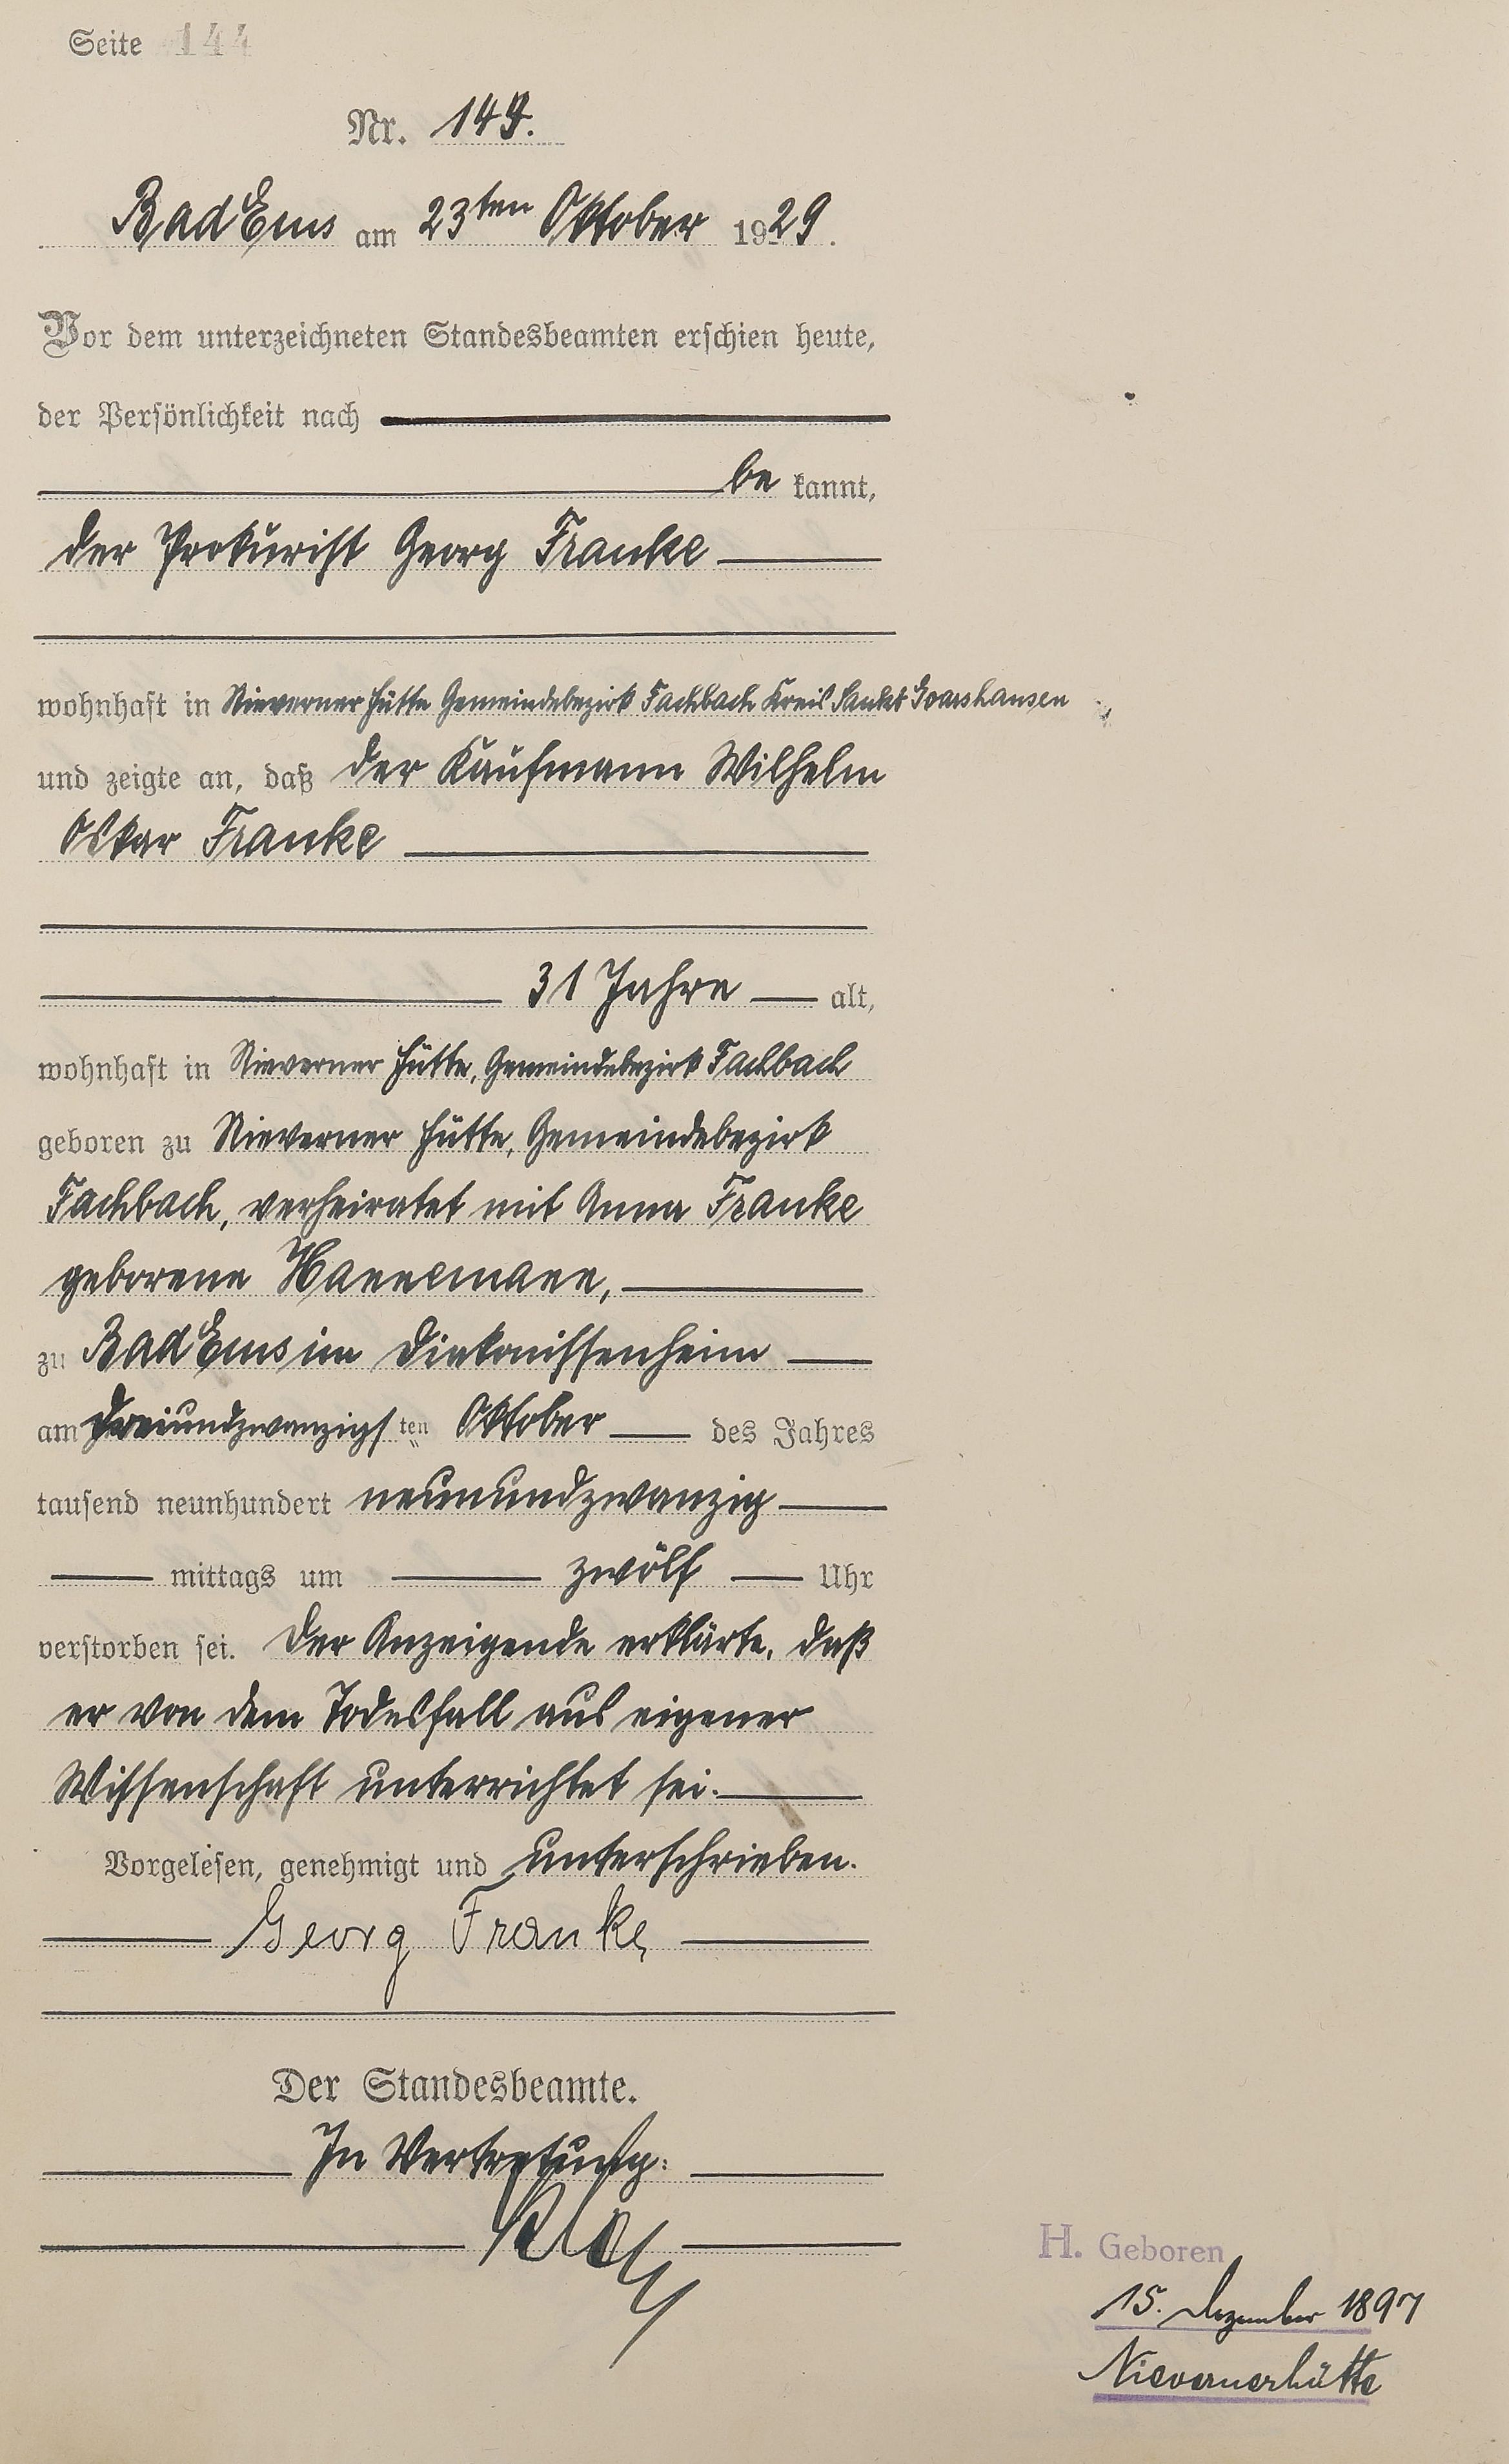 Seite 144
Nr. 144.
Bad Ems am 23ten Oktober 1929.
Vor dem unterzeichneten Standesbeamten erschien heute,
der Persönlichkeit nach
be kannt,
der Prokurist Georg Franke
wohnhaft in Nieverner Hütte Gemeindebezirk Fachbach Kreis Sankt Goarshausen
und zeigte an, daß der Kaufmann Wilhelm
Oskar Franke
31 Jahre alt,
wohnhaft in Nieverner Hütte, Gemeindebezirk Fachbach
geboren zu Nieverner Hütte, Gemeindebezirk
Fachbach, verheiratet mit Anna Franke
geborene Hannemann,
zu Bad Ems im Diakonissenheim
am dreiundzwanzigsten Oktober des Jahres
tausend neunhundert neunundzwanzig
mittags um zwölf Uhr
verstorben sei. Der Anzeigende erklärte, daß
er von dem Todesfall aus eigener
Wissenschaft unterrichtet sei.
Vorgelesen, genehmigt und unterschrieben.
Georg Franke
Der Standesbeamte.
In Vertretung:
H. Geboren
15. Dezember 1897
Nievernerhütte